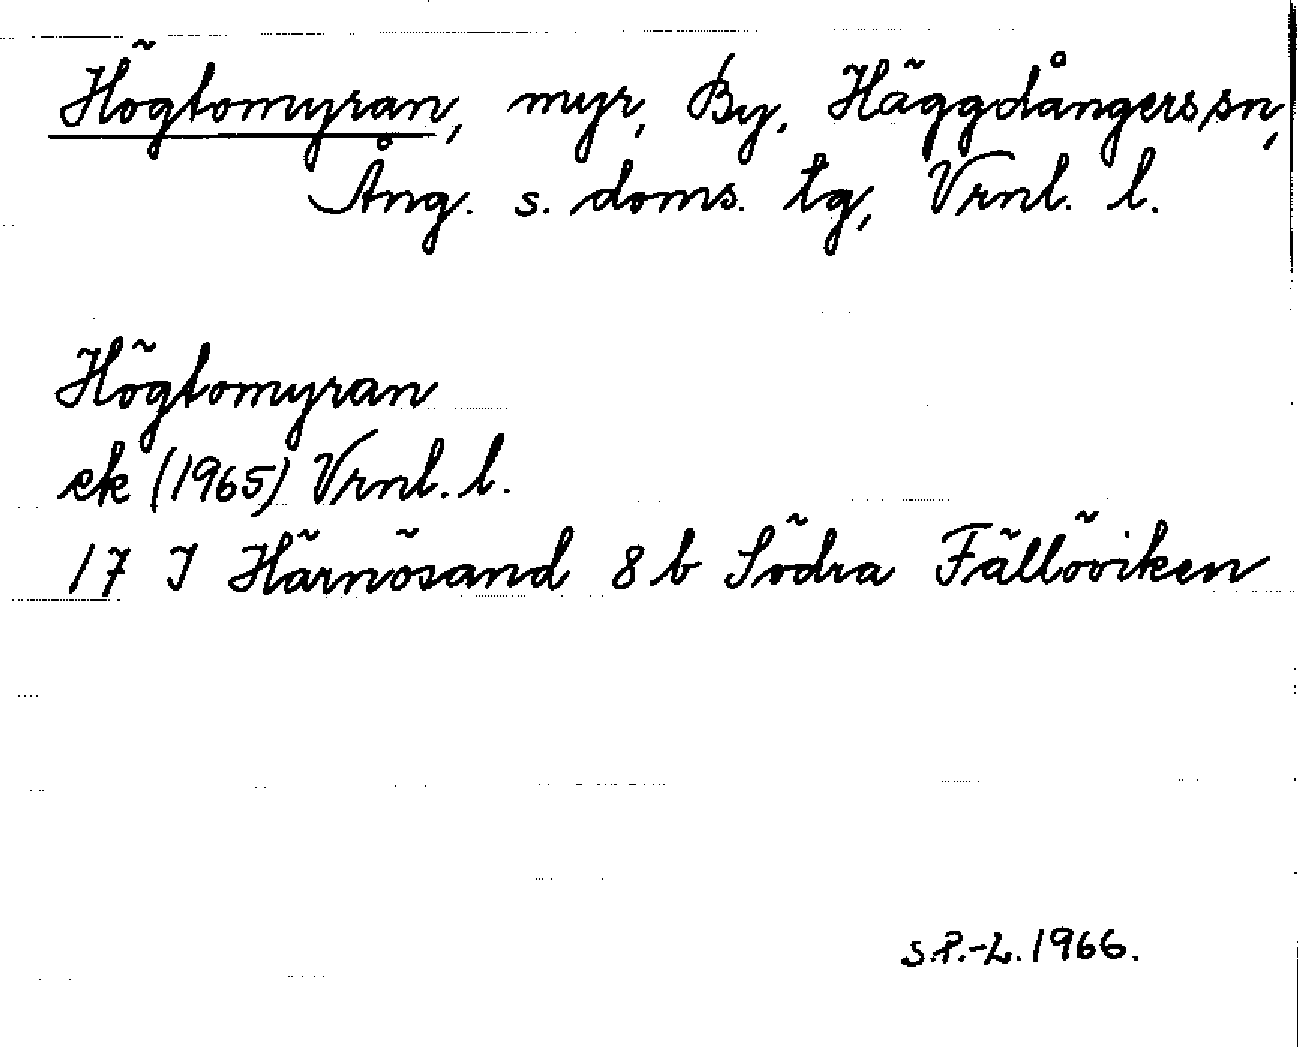 Högtomyran, myr, By, Häggdångers sn,
Ång. s. doms. tg, Vrnl. l.
Högtomyran
ek (1965) Vrnl. l.
17 I Härnösand 8 b Södra Fällöviken
S.P.-L. 1966.